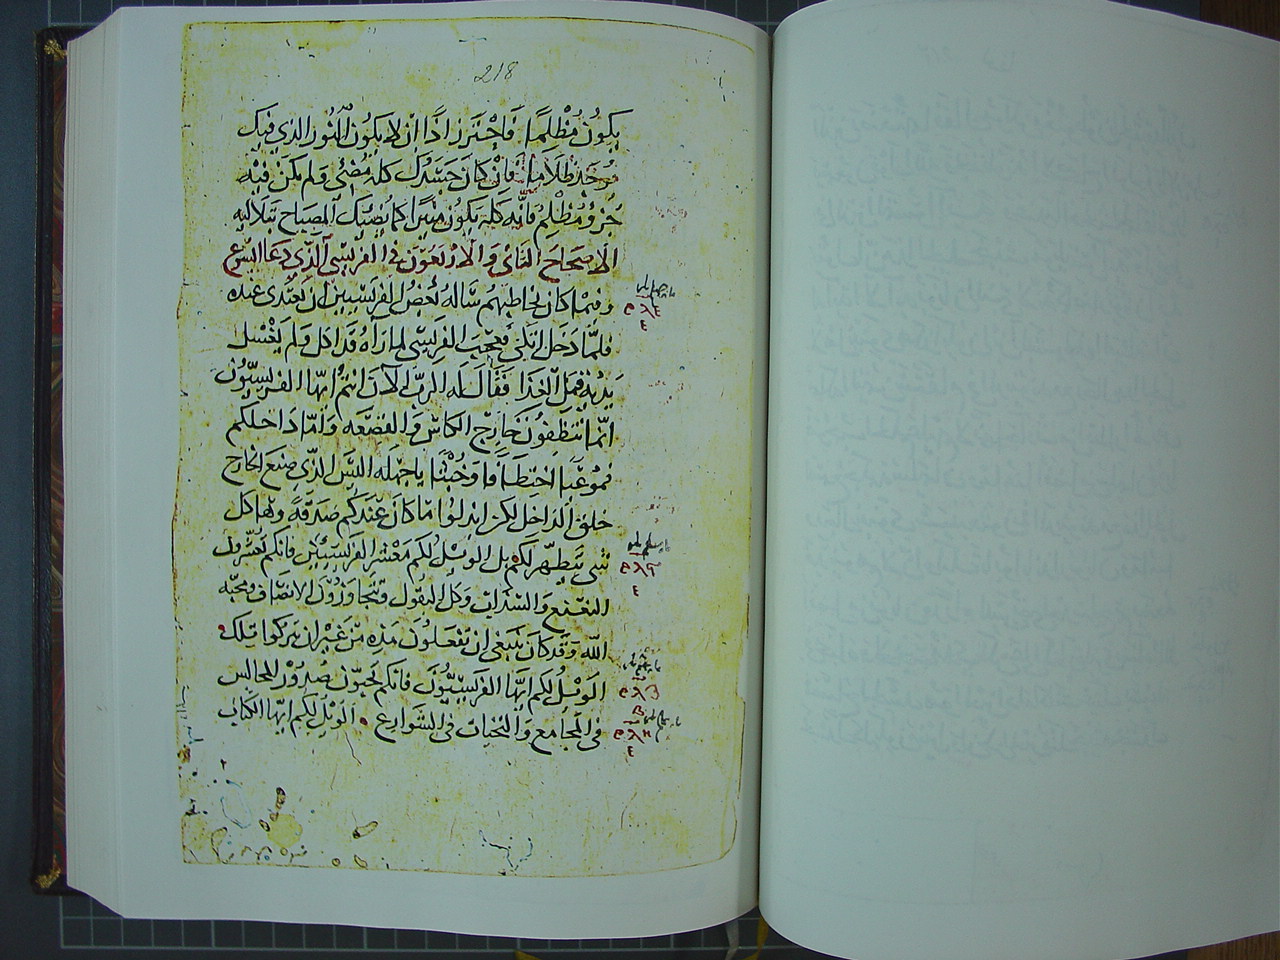 218
يكون مظلمًا فاحترز اذًا ان لا يكون النور الذي فيك
يوجد ظلاما فان كان جسدك كله مضئي ولم يكن فيه
جزؤ مظلم فانه كله يكون منيرا كما يضيك المصباح بتلاليه
الاصحاح الثاني والاربعون في الفريسي الذي دعا اليسوع
وفيما كان يخاطبهم ساله بعض الفريسيين ان يتغدى عنده
فلما دخل اتكي فعجب الفريسي لما رآه قد اكل ولم يغسل
يديه قبل الغذا فقال له الرب الآن انتم ايها الفريسيون
انما تنظفون خارج الكاس والقصعه واما داخلكم
فموعبا اختطافا وخبثا يا جهله اليس الذي صنع الخارج
خلق الداخل لكن ابدلوا ما كان عندكم صدقة وها كل
شي يتطهر لكم بل الويل لكم معشر الفريسيين فانكم تعشرون
النعنع والسذاب وكل البقول وتتجاوزون الانصاف ومحبه
الله وقد كان ينبغي ان تفعلون هذه من غير ان تتركوا تلك
الويل لكم ايها الفريسيون فانكم تحبون صدور المجالس
في المجامع والتحيات في الشوارع الويل لكم ايها الكتاب